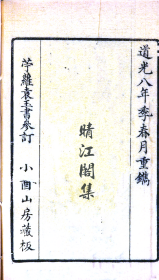 道光八年季春月重鐫
晴江閣集
苧蘿袁玉書參訂
小酉山房藏板